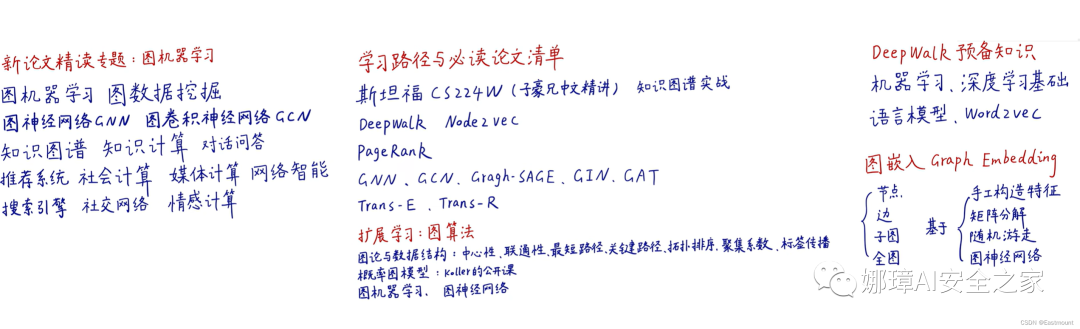 新论文精读专题：图机器学习
图机器学习 图数据挖掘
图神经网络GNN 图卷积神经网络GCN
知识图谱 知识计算 对话问答
推荐系统 社会计算 媒体计算 网络智能
搜索引擎 社交网络 情感计算
学习路径与必读论文清单
斯坦福 CS224W（子豪兄中文精讲） 知识图谱实战
DeepWalk Node2vec
PageRank
GNN、GCN、Gragh-SAGE、GIN、GAT
Trans-E、Trans-R
扩展学习：图算法
图论与数据结构：中心性、联通性、最短路径、关键路径、拓扑排序、聚集系数、标签传播
概率图模型：Koller的公开课
图机器学习、图神经网络
DeepWalk 预备知识
机器学习、深度学习基础
语言模型、Word2vec
图嵌入 Graph Embedding
节点
边
子图
全图
基于
手工构造特征
矩阵分解
随机游走
图神经网络
娜璋AI安全之家
CSDN @Eastmount